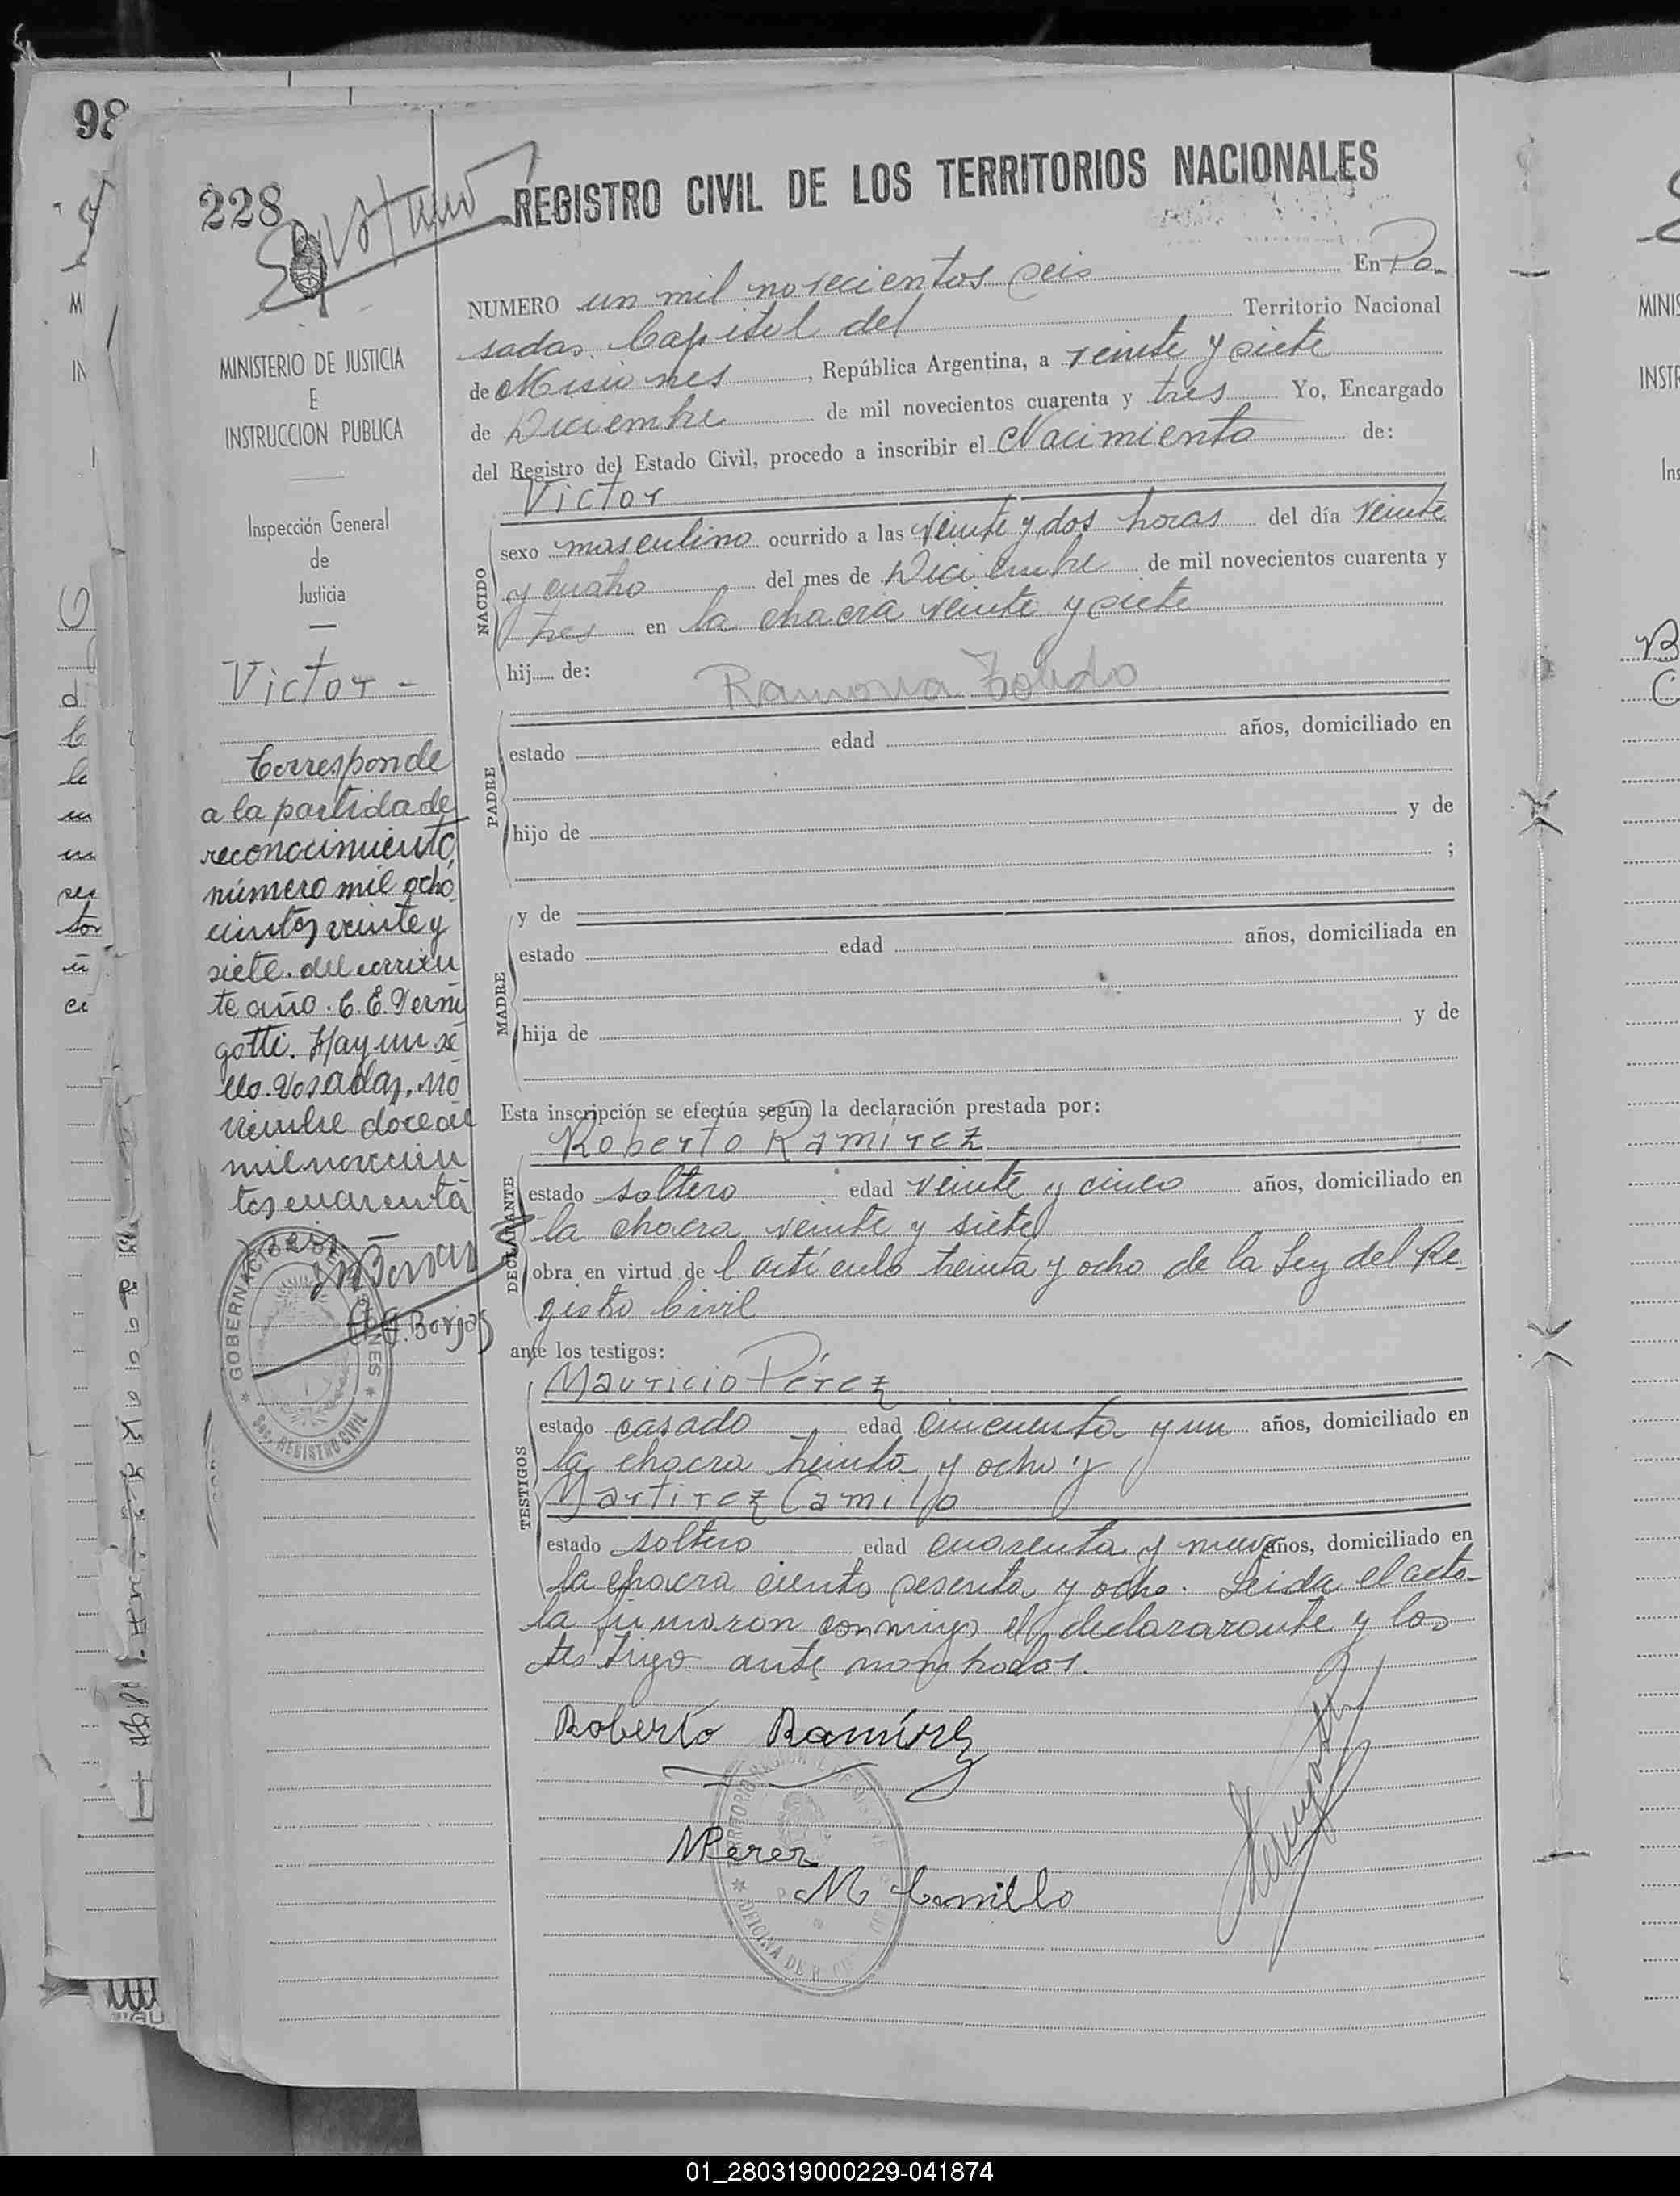 98
228
REGISTRO CIVIL DE LOS TERRITORIOS NACIONALES
MINISTERIO DE JUSTICIA
E
INSTRUCCION PUBLICA
Inspección General
de
Justicia
Victor -
Corresponde
a la partida de
reconocimiento,
número mil ocho
cientos veinte y
siete. del corrien
te año. C. E. Verni
gotti. Hay un se
llo. Posadas, no
viembre doce de
mil novecien
tos cuarenta
A. G. Borjas
GOBERNACION DE MISIONES
Sec. REGISTRO CIVIL
NUMERO un mil novecientos seis En Po-
sadas. Capital del Territorio Nacional
de Misiones, República Argentina, a veinte y siete
de Diciembre de mil novecientos cuarenta y tres Yo, Encargado
del Registro del Estado Civil, procedo a inscribir el Nacimiento de:
Victor
NACIDO
sexo masculino ocurrido a las veinte y dos horas del día veinte
y cuatro del mes de Diciembre de mil novecientos cuarenta y
tres en la chacra veinte y siete
hij de:
Ramona Toledo
PADRE
estado edad años, domiciliado en
hijo de y de
;
y de
MADRE
estado edad años, domiciliada en
hija de y de
Esta inscripción se efectúa según la declaración prestada por:
Roberto Ramirez
DECLARANTE
estado soltero edad veinte y cinco años, domiciliado en
la chacra veinte y siete
obra en virtud de l artículo treinta y ocho de la Ley del Re-
gistro Civil
ante los testigos:
Mauricio Pérez
TESTIGOS
estado casado edad cincuenta y un años, domiciliado en
la chacra treinta y ocho y
Martirez Camillo
estado soltero edad cuarenta y nueve años, domiciliado en
la chacra ciento sesenta y ocho. Leida el acta
la firmaron conmigo el declararante y los
testigo ante nombrados.
Roberto Ramírez
MPerez
M Camillo
OFICINA DE R.
MINIS
INSTR
Ins
01_280319000229-041874